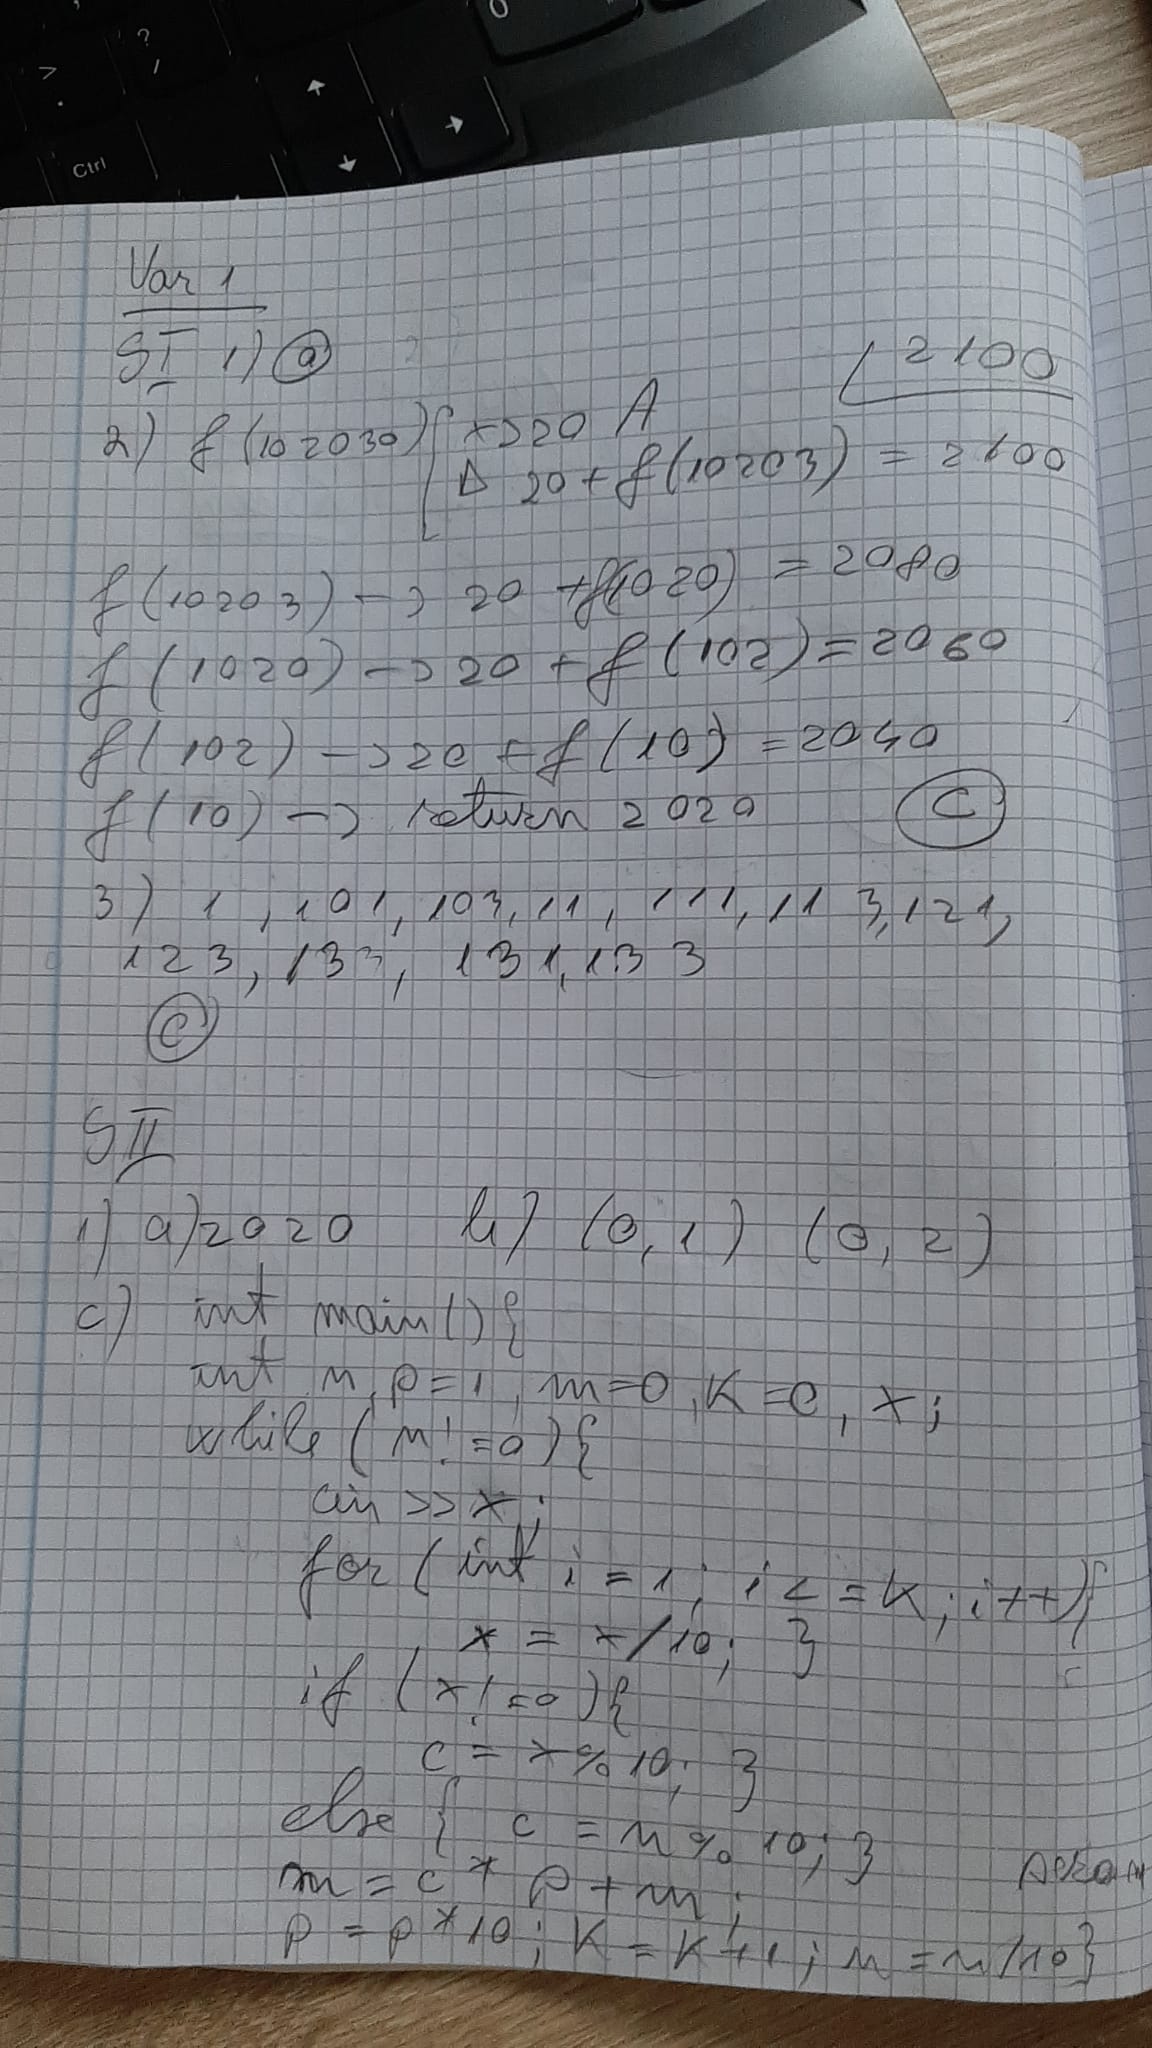 Ctrl
Var 1
SI 1) a
2100
2) f(102030) { x>20 A
20 + f(10203) = 2100
f(10203) -> 20 + f(1020) = 2080
f(1020) -> 20 + f(102) = 2060
f(102) -> 20 + f(10) = 2040
f(10) -> return 2020 C
3) 1, 101, 103, 11, 111, 113, 121,
123, 133, 131, 133
C
SII
1) a) 2020 b) (0,1) (0,2)
c) int main(){
int n, p=1, m=0, K=0, x;
while (n!=0){
cin >> x;
for (int i=1; i<=K; i++){
x = x/10; }
if (x!=0){
c = x%10; }
else { c = n%10; }
m = c*p+m;
p = p*10; K = K+1; n = n/10}